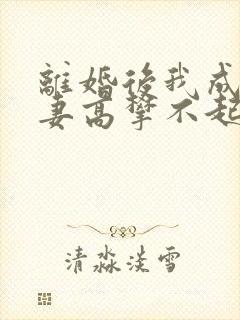 離婚後我成
妻高攀不起
清淼淡雪